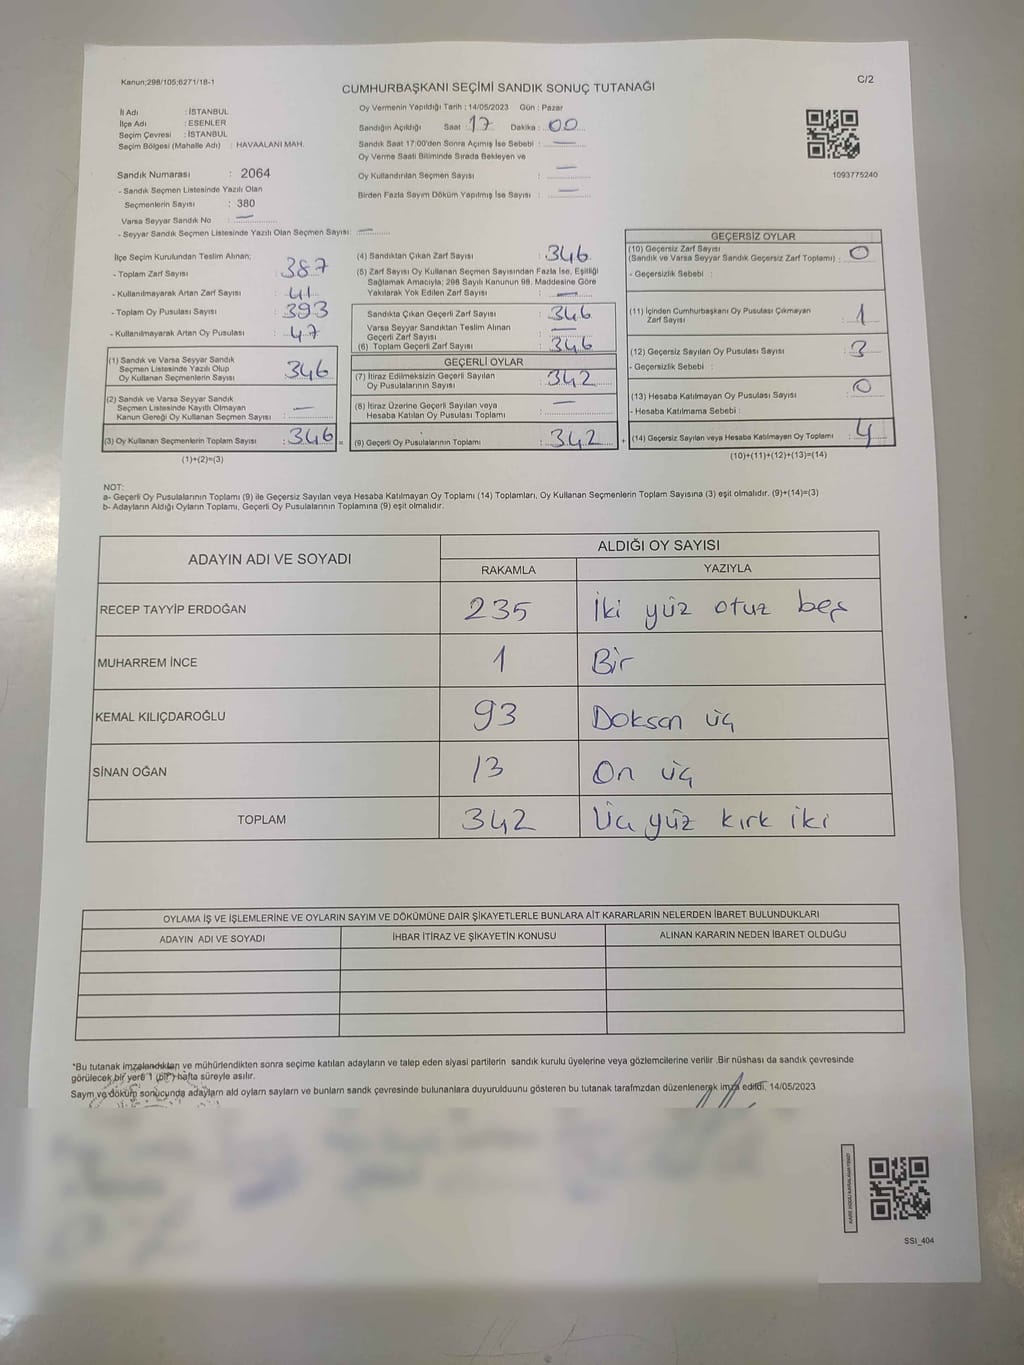 Kanun;298/105;6271/18-1
C/2
CUMHURBAŞKANI SEÇİMİ SANDIK SONUÇ TUTANAĞI
İl Adı : İSTANBUL
İlçe Adı : ESENLER
Seçim Çevresi : İSTANBUL
Seçim Bölgesi (Mahalle Adı) : HAVAALANI MAH.
Sandık Numarası : 2064
- Sandık Seçmen Listesinde Yazılı Olan
Seçmenlerin Sayısı : 380
Varsa Seyyar Sandık No : —
- Seyyar Sandık Seçmen Listesinde Yazılı Olan Seçmen Sayısı : —
Oy Vermenin Yapıldığı Tarih : 14/05/2023 Gün : Pazar
Sandığın Açıldığı Saat : 17 Dakika : 00
Sandık Saat 17:00'den Sonra Açımış İse Sebebi : —
Oy Verme Saati Bitiminde Sırada Bekleyen ve
Oy Kullandırılan Seçmen Sayısı : —
Birden Fazla Sayım Döküm Yapılmış İse Sayısı : —
1093775240
İlçe Seçim Kurulundan Teslim Alınan;
- Toplam Zarf Sayısı : 387
- Kullanılmayarak Artan Zarf Sayısı : 41
- Toplam Oy Pusulası Sayısı : 393
- Kullanılmayarak Artan Oy Pusulası : 47
(1) Sandık ve Varsa Seyyar Sandık
Seçmen Listesinde Yazılı Olup
Oy Kullanan Seçmenlerin Sayısı : 346
(2) Sandık ve Varsa Seyyar Sandık
Seçmen Listesinde Kayıtlı Olmayan
Kanun Gereği Oy Kullanan Seçmen Sayısı : —
(3) Oy Kullanan Seçmenlerin Toplam Sayısı : 346 =
(1)+(2)=(3)
(4) Sandıktan Çıkan Zarf Sayısı : 346
(5) Zarf Sayısı Oy Kullanan Seçmen Sayısından Fazla İse, Eşitliği
Sağlamak Amacıyla; 298 Sayılı Kanunun 98. Maddesine Göre
Yakılarak Yok Edilen Zarf Sayısı : —
Sandıkta Çıkan Geçerli Zarf Sayısı : 346
Varsa Seyyar Sandıktan Teslim Alınan
Geçerli Zarf Sayısı : —
(6) Toplam Geçerli Zarf Sayısı : 346
GEÇERLİ OYLAR
(7) İtiraz Edilmeksizin Geçerli Sayılan
Oy Pusulalarının Sayısı : 342
(8) İtiraz Üzerine Geçerli Sayılan veya
Hesaba Katılan Oy Pusulası Toplamı : —
(9) Geçerli Oy Pusulalarının Toplamı : 342 +
GEÇERSİZ OYLAR
(10) Geçersiz Zarf Sayısı
(Sandık ve Varsa Seyyar Sandık Geçersiz Zarf Toplamı) : 0
- Geçersizlik Sebebi :
(11) İçinden Cumhurbaşkanı Oy Pusulası Çıkmayan
Zarf Sayısı : 1
(12) Geçersiz Sayılan Oy Pusulası Sayısı : 3
- Geçersizlik Sebebi :
(13) Hesaba Katılmayan Oy Pusulası Sayısı : 0
- Hesaba Katılmama Sebebi :
(14) Geçersiz Sayılan veya Hesaba Katılmayan Oy Toplamı : 4
(10)+(11)+(12)+(13)=(14)
NOT:
a- Geçerli Oy Pusulalarının Toplamı (9) ile Geçersiz Sayılan veya Hesaba Katılmayan Oy Toplamı (14) Toplamları, Oy Kullanan Seçmenlerin Toplam Sayısına (3) eşit olmalıdır. (9)+(14)=(3)
b- Adayların Aldığı Oyların Toplamı, Geçerli Oy Pusulalarının Toplamına (9) eşit olmalıdır.
ADAYIN ADI VE SOYADI
ALDIĞI OY SAYISI
RAKAMLA YAZIYLA
RECEP TAYYİP ERDOĞAN 235 İki yüz otuz beş
MUHARREM İNCE 1 Bir
KEMAL KILIÇDAROĞLU 93 Doksan üç
SİNAN OĞAN 13 On üç
TOPLAM 342 Üç yüz kırk iki
OYLAMA İŞ VE İŞLEMLERİNE VE OYLARIN SAYIM VE DÖKÜMÜNE DAİR ŞİKAYETLERLE BUNLARA AİT KARARLARIN NELERDEN İBARET BULUNDUKLARI
ADAYIN ADI VE SOYADI İHBAR İTİRAZ VE ŞİKAYETİN KONUSU ALINAN KARARIN NEDEN İBARET OLDUĞU
*Bu tutanak imzalandıktan ve mühürlendikten sonra seçime katılan adayların ve talep eden siyasi partilerin sandık kurulu üyelerine veya gözlemcilerine verilir .Bir nüshası da sandık çevresinde
görülecek bir yere 1 (bir) hafta süreyle asılır.
Saym ve döküm sonucunda adaylarn ald oylarn saylarn ve bunlarn sandk çevresinde bulunanlara duyurulduunu gösteren bu tutanak tarafmzdan düzenlenerek imza edildi. 14/05/2023
SSI_404